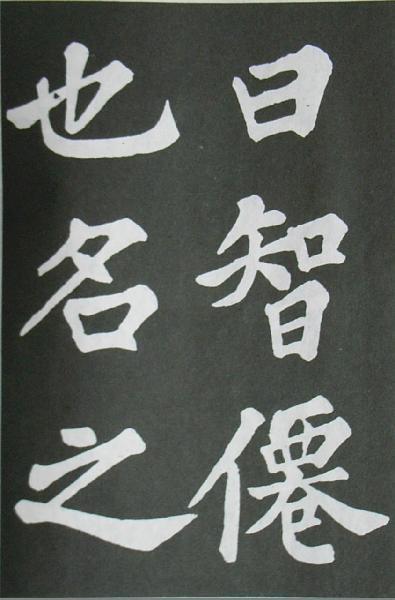 曰智僊
也名之